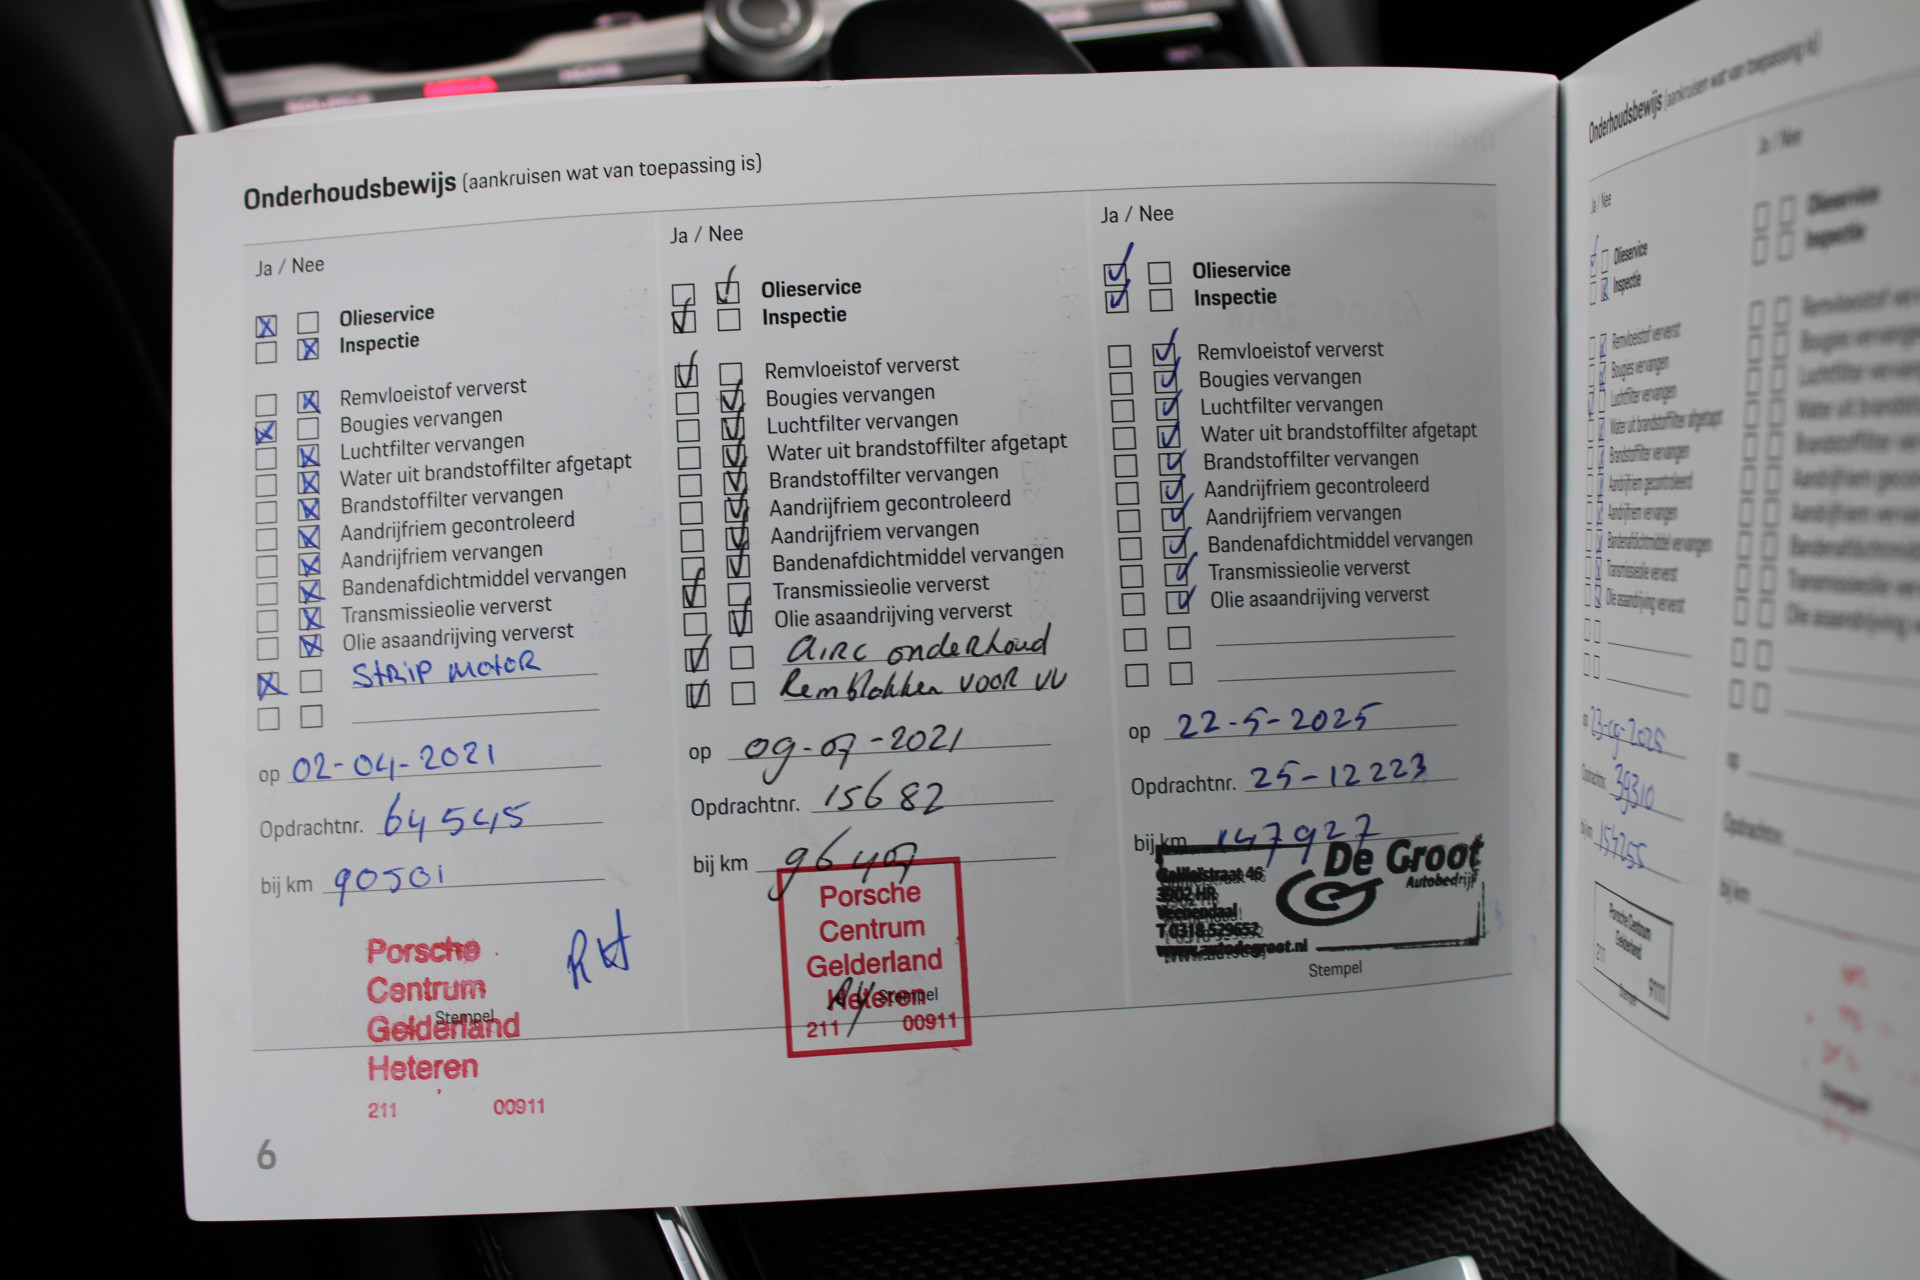 Onderhoudsbewijs (aankruisen wat van toepassing is)
Ja / Nee
Olieservice
Inspectie
Remvloeistof ververst
Bougies vervangen
Luchtfilter vervangen
Water uit brandstoffilter afgetapt
Brandstoffilter vervangen
Aandrijfriem gecontroleerd
Aandrijfriem vervangen
Bandenafdichtmiddel vervangen
Transmissieolie ververst
Olie asaandrijving ververst
Strip motor
op 02-04-2021
Opdrachtnr. 64545
bij km 90501
Porsche
Centrum
Gelderland
Heteren
211 00911
Stempel
RH
6
Ja / Nee
Olieservice
Inspectie
Remvloeistof ververst
Bougies vervangen
Luchtfilter vervangen
Water uit brandstoffilter afgetapt
Brandstoffilter vervangen
Aandrijfriem gecontroleerd
Aandrijfriem vervangen
Bandenafdichtmiddel vervangen
Transmissieolie ververst
Olie asaandrijving ververst
Airc onderhoud
Remblokken voor vv
op 09-07-2021
Opdrachtnr. 15682
bij km 96407
Porsche
Centrum
Gelderland
Heteren
Stempel
211 00911
Ja / Nee
Olieservice
Inspectie
Remvloeistof ververst
Bougies vervangen
Luchtfilter vervangen
Water uit brandstoffilter afgetapt
Brandstoffilter vervangen
Aandrijfriem gecontroleerd
Aandrijfriem vervangen
Bandenafdichtmiddel vervangen
Transmissieolie ververst
Olie asaandrijving ververst
op 22-5-2025
Opdrachtnr. 25-12223
bij km 147927
De Groot
Autobedrijf
Galileïstraat 46
3902 HR
Veenendaal
T 0318 529652
www.autodegroot.nl
Stempel
Onderhoudsbewijs (aankruisen wat van toepassing is)
Ja / Nee
Olieservice
Inspectie
Remvloeistof ververst
Bougies vervangen
Luchtfilter vervangen
Water uit brandstoffilter afgetapt
Brandstoffilter vervangen
Aandrijfriem gecontroleerd
Aandrijfriem vervangen
Bandenafdichtmiddel vervangen
Transmissieolie ververst
Olie asaandrijving ververst
op 23-09-2025
Opdrachtnr. 39310
bij km
Porsche Centrum
Gelderland
211
Stempel
Ja / Nee
Olieservice
Inspectie
op
Opdrachtnr.
bij km
Stempel